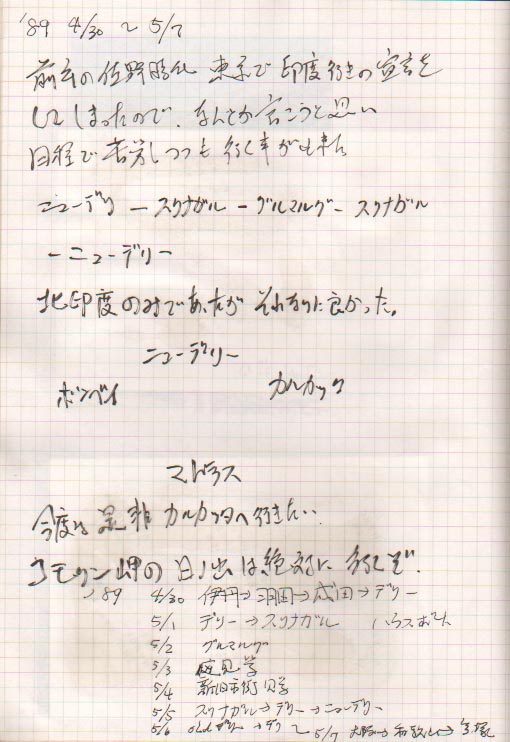 '89 4/30 〜 5/7
前年の佐野 東京で印度行きの宣言を
してしまったので、なんとか言こうと思い
日程で苦労しつつも行く事が出来た
ニューデリー ー スリナガル ー グルマルグー スリナガル
ー ニューデリー
北印度のみであったが それなりに良かった。
ニューデリー
ボンベイ カルカッタ
マドラス
今度は是非 カルカッタへ行きたい..
コモリン岬の日ノ出は絶対に 行くぞ.
'89 4/30 伊丹→羽田→成田→デリー
5/1 デリー→スリナガル ハウスボート
5/2 グルマルグ
5/3 見学
5/4 新旧市街 見学
5/5 スリナガル→デリー→ニューデリー
5/6 oldデリー→デリー 〜 5/7 大阪→和歌山→